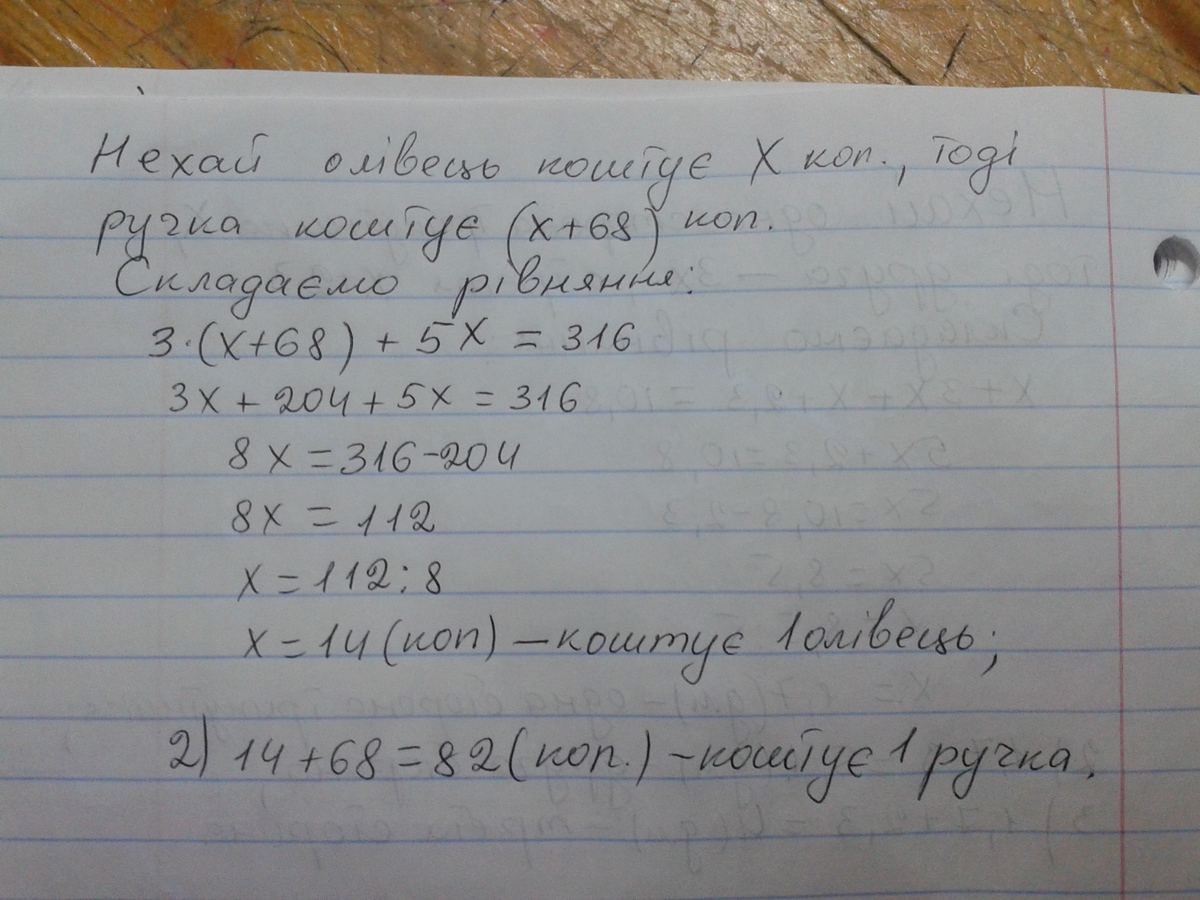 Нехай олівець коштує X коп., тоді
ручка коштує (x+68) коп.
Складаємо рівняння:
3·(x+68) + 5x = 316
3x + 204 + 5x = 316
8x = 316-204
8x = 112
x = 112:8
x = 14 (коп) – коштує 1 олівець;
2) 14+68 = 82 (коп.) – коштує 1 ручка.